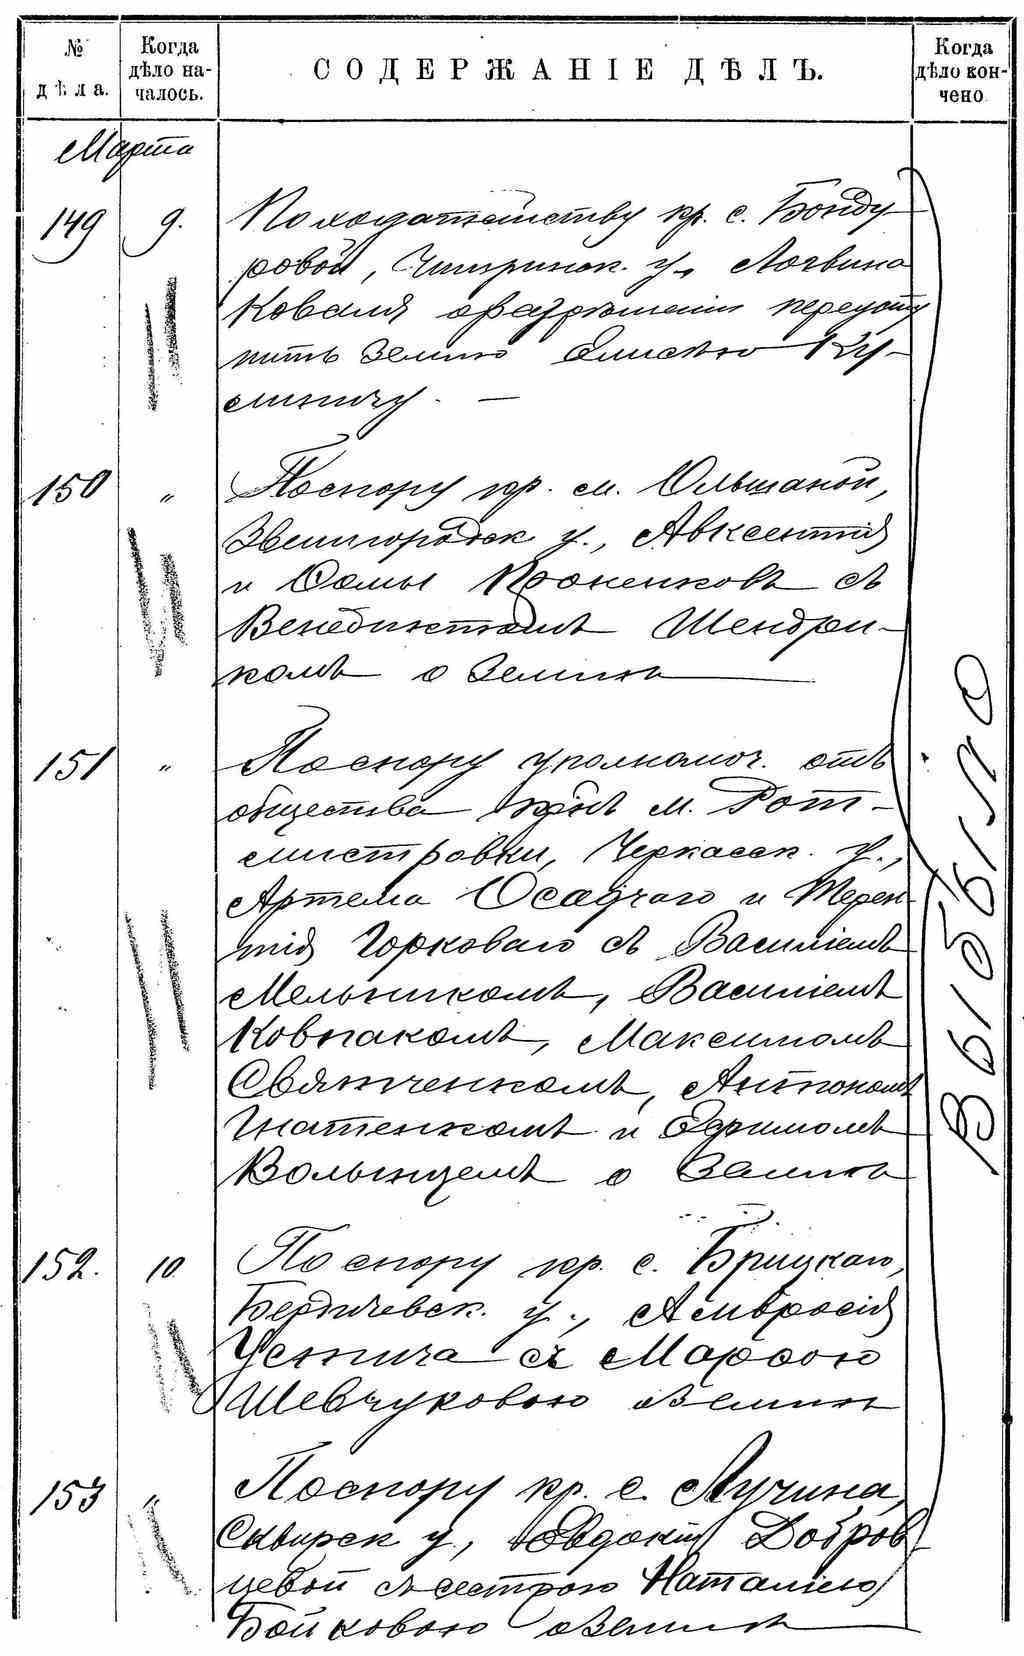 № дѣла.
Когда дѣло на-
чалось.
СОДЕРЖАНІЕ ДѢЛЪ.
Когда
дѣло кон-
чено
Марта
149 9. По ходатайству кр. с. Бонду
ровой, Чигиринск. у., Логвина
Коваля о разрѣшеніи переусту
пить землю Елисѣю Ку-
линичу. —
150 " По спору кр. м. Ольшаной,
Звенигородск у., Авксентія
и Сомы с
Венедиктомъ Шендри-
комъ о землѣ
151 " По спору уполномоч. отъ
общества кр̃нъ м. Рот-
мистровки, Черкасск. у.,
Артема Осадчаго и Терен-
тія Горковаго съ Василіемъ
Мельникомъ, Василіемъ
Ковпакомъ, Максимомъ
Святченкомъ, Антономъ
Гнатенкомъ и Ефимомъ
Волынцемъ о землѣ
152. 10 По спору кр. с. Брицкаго,
Бердичевск. у., Амвросія
Устича съ Марфою
Шевчуковою о землѣ
153 " По спору кр. с. Лучина,
Сквирск у., Евдокіи Добров-
цевой съ сестрою Наталіею
Бойковою о землѣ
Выбыло